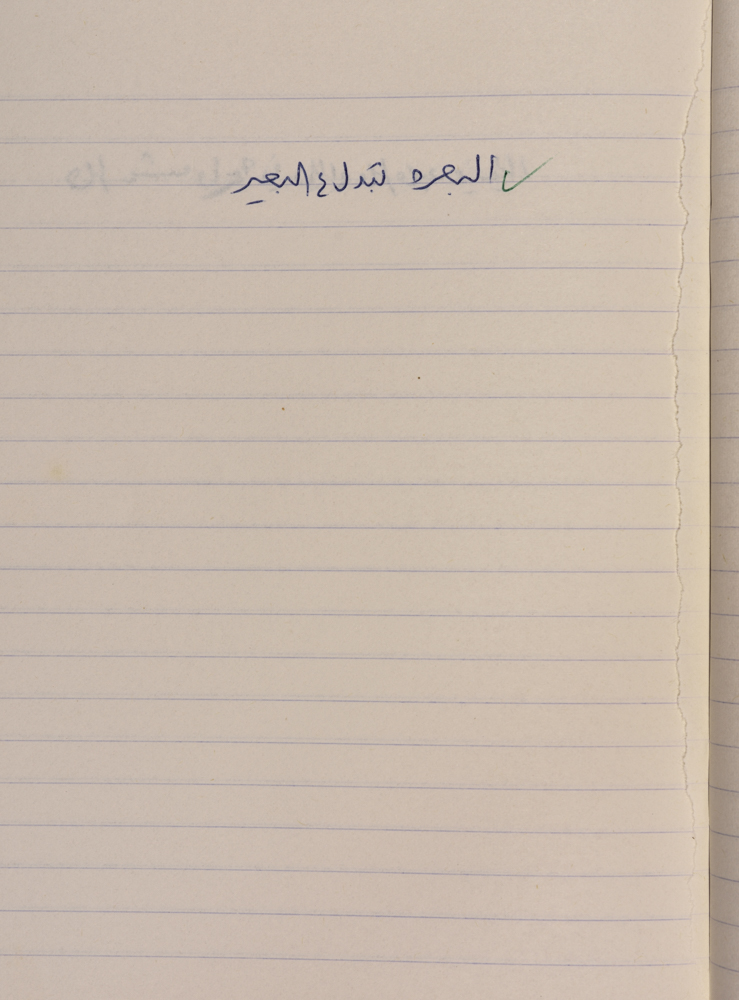 البعره تبدل ع البعير